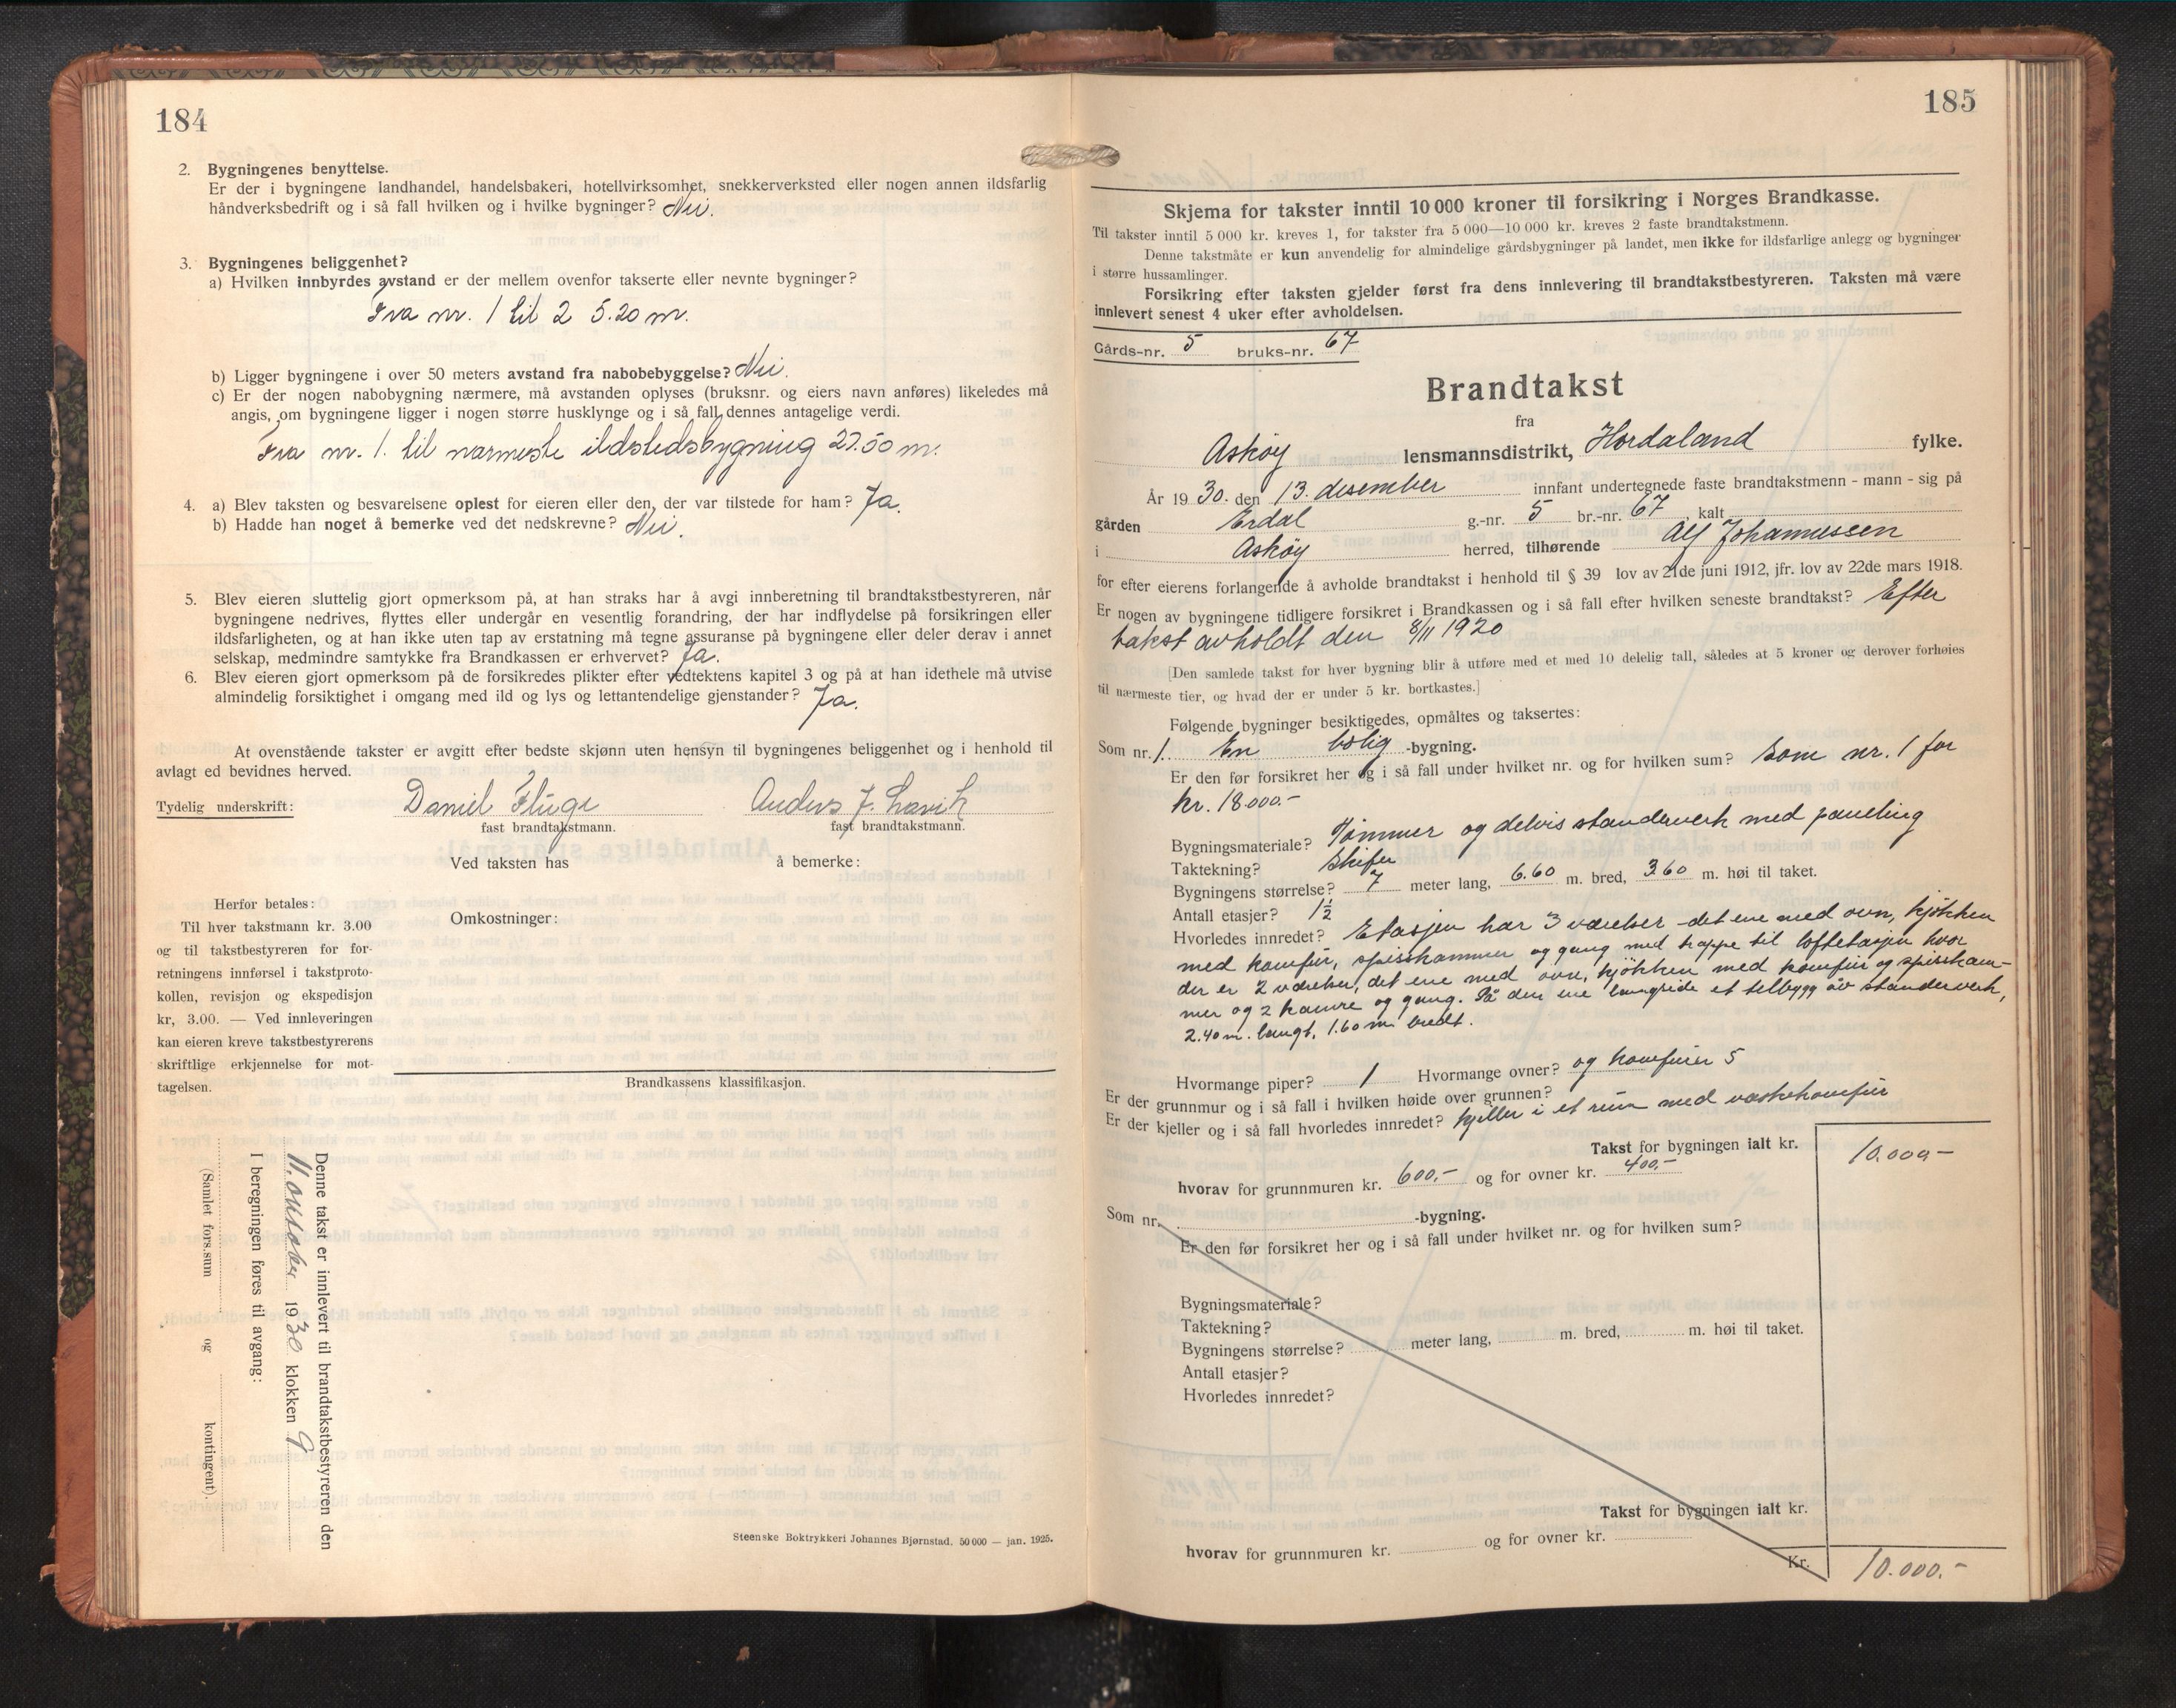 184
2. Bygningenes benyttelse.
Er der i bygningene landhandel, handelsbakeri, hotellvirksomhet, snekkerverksted eller nogen annen ildsfarlig
håndverksbedrift og i så fall hvilken og i hvilke bygninger? Nei.
3. Bygningenes beliggenhet?
a) Hvilken innbyrdes avstand er der mellem ovenfor takserte eller nevnte bygninger?
Fra nr. 1 til 2 5.20 m.
b) Ligger bygningene i over 50 meters avstand fra nabobebyggelse? Nei.
c) Er der nogen nabobygning nærmere, må avstanden oplyses (bruksnr. og eiers navn anføres) likeledes må
angis, om bygningene ligger i nogen større husklynge og i så fall dennes antagelige verdi.
Fra nr. 1. til nærmeste ildstedsbygning 27.50 m.
4. a) Blev taksten og besvarelsene oplest for eieren eller den, der var tilstede for ham? Ja.
b) Hadde han noget å bemerke ved det nedskrevne? Nei.
5. Blev eieren sluttelig gjort opmerksom på, at han straks har å avgi innberetning til brandtakstbestyreren, når
bygningene nedrives, flyttes eller undergår en vesentlig forandring, der har indflydelse på forsikringen eller
ildsfarligheten, og at han ikke uten tap av erstatning må tegne assuranse på bygningene eller deler derav i annet
selskap, medmindre samtykke fra Brandkassen er erhvervet? Ja.
6. Blev eieren gjort opmerksom på de forsikredes plikter efter vedtektens kapitel 3 og på at han idethele må utvise
almindelig forsiktighet i omgang med ild og lys og lettantendelige gjenstander? Ja.
At ovenstående takster er avgitt efter bedste skjønn uten hensyn til bygningenes beliggenhet og i henhold til
avlagt ed bevidnes herved.
Tydelig underskrift: Daniel Fluge Anders J. Lavik
fast brandtakstmann. fast brandtakstmann.
Ved taksten has å bemerke:
Herfor betales:
Til hver takstmann kr. 3.00
og til takstbestyreren for for-
retningens innførsel i takstproto-
kollen, revisjon og ekspedisjon
kr, 3.00. — Ved innleveringen
kan eieren kreve takstbestyrerens
skriftlige erkjennelse for mot-
tagelsen.
Omkostninger:
Brandkassens klassifikasjon.
Denne takst er innlevert til brandtakstbestyreren den
11. oktober 1930 klokken 9
I beregningen føres til avgang:
(Samlet fors.sum og kontingent).
Steenske Boktrykkeri Johannes Bjørnstad. 50 000 — jan. 1925.
185
Skjema for takster inntil 10 000 kroner til forsikring i Norges Brandkasse.
Til takster inntil 5 000 kr. kreves 1, for takster fra 5 000—10 000 kr. kreves 2 faste brandtakstmenn.
Denne takstmåte er kun anvendelig for almindelige gårdsbygninger på landet, men ikke for ildsfarlige anlegg og bygninger
i større hussamlinger.
Forsikring efter taksten gjelder først fra dens innlevering til brandtakstbestyreren. Taksten må være
innlevert senest 4 uker efter avholdelsen.
Gårds-nr. 5 bruks-nr. 67
Brandtakst
fra
Askøy lensmannsdistrikt, Hordaland fylke.
År 1930. den 13. desember innfant undertegnede faste brandtakstmenn - mann - sig på
gården Erdal g.-nr. 5 br.-nr. 67, kalt
i Askøy herred, tilhørende Alf Johannessen
for efter eierens forlangende å avholde brandtakst i henhold til § 39 lov av 21de juni 1912, jfr. lov av 22de mars 1918.
Er nogen av bygningene tidligere forsikret i Brandkassen og i så fall efter hvilken seneste brandtakst? Efter
takst avholdt den 8/11 1920
[Den samlede takst for hver bygning blir å utføre med et med 10 delelig tall, således at 5 kroner og derover forhøies
til nærmeste tier, og hvad der er under 5 kr. bortkastes.]
Følgende bygninger besiktigedes, opmåltes og taksertes:
Som nr. 1. En bolig -bygning.
Er den før forsikret her og i så fall under hvilket nr. og for hvilken sum? Som nr. 1 for
kr. 18.000.-
Bygningsmateriale? Tømmer og delvis standerverk med paneling
Taktekning? Skifer
Bygningens størrelse? 7 meter lang, 6.60 m. bred, 3.60 m. høi til taket.
Antall etasjer? 1½
Hvorledes innredet? Etasjen har 3 værelser det ene med ovn, kjøkken
med komfur, spiskammer og gang med trappe til loftetasjen hvor
der er 2 værelser, det ene med ovn, kjøkken med komfur og spiskam-
mer og 2 kamre og gang. På den ene langside et tilbygg av standerverk,
2.40 m. langt, 1.60 m. bredt.
Hvormange piper? 1 Hvormange ovner? og komfurer 5
Er der grunnmur og i så fall i hvilken høide over grunnen?
Er der kjeller og i så fall hvorledes innredet? Kjeller i et rum med vaskekomfur
Takst for bygningen ialt kr. 10.000-
hvorav for grunnmuren kr. 600,- og for ovner kr. 400,-
Som nr. -bygning.
Er den før forsikret her og i så fall under hvilket nr. og for hvilken sum?
Bygningsmateriale?
Taktekning?
Bygningens størrelse? meter lang, m. bred, m. høi til taket.
Antall etasjer?
Hvorledes innredet?
Takst for bygningen ialt kr.
hvorav for grunnmuren kr. og for ovner kr.
Kr. 10.000.-